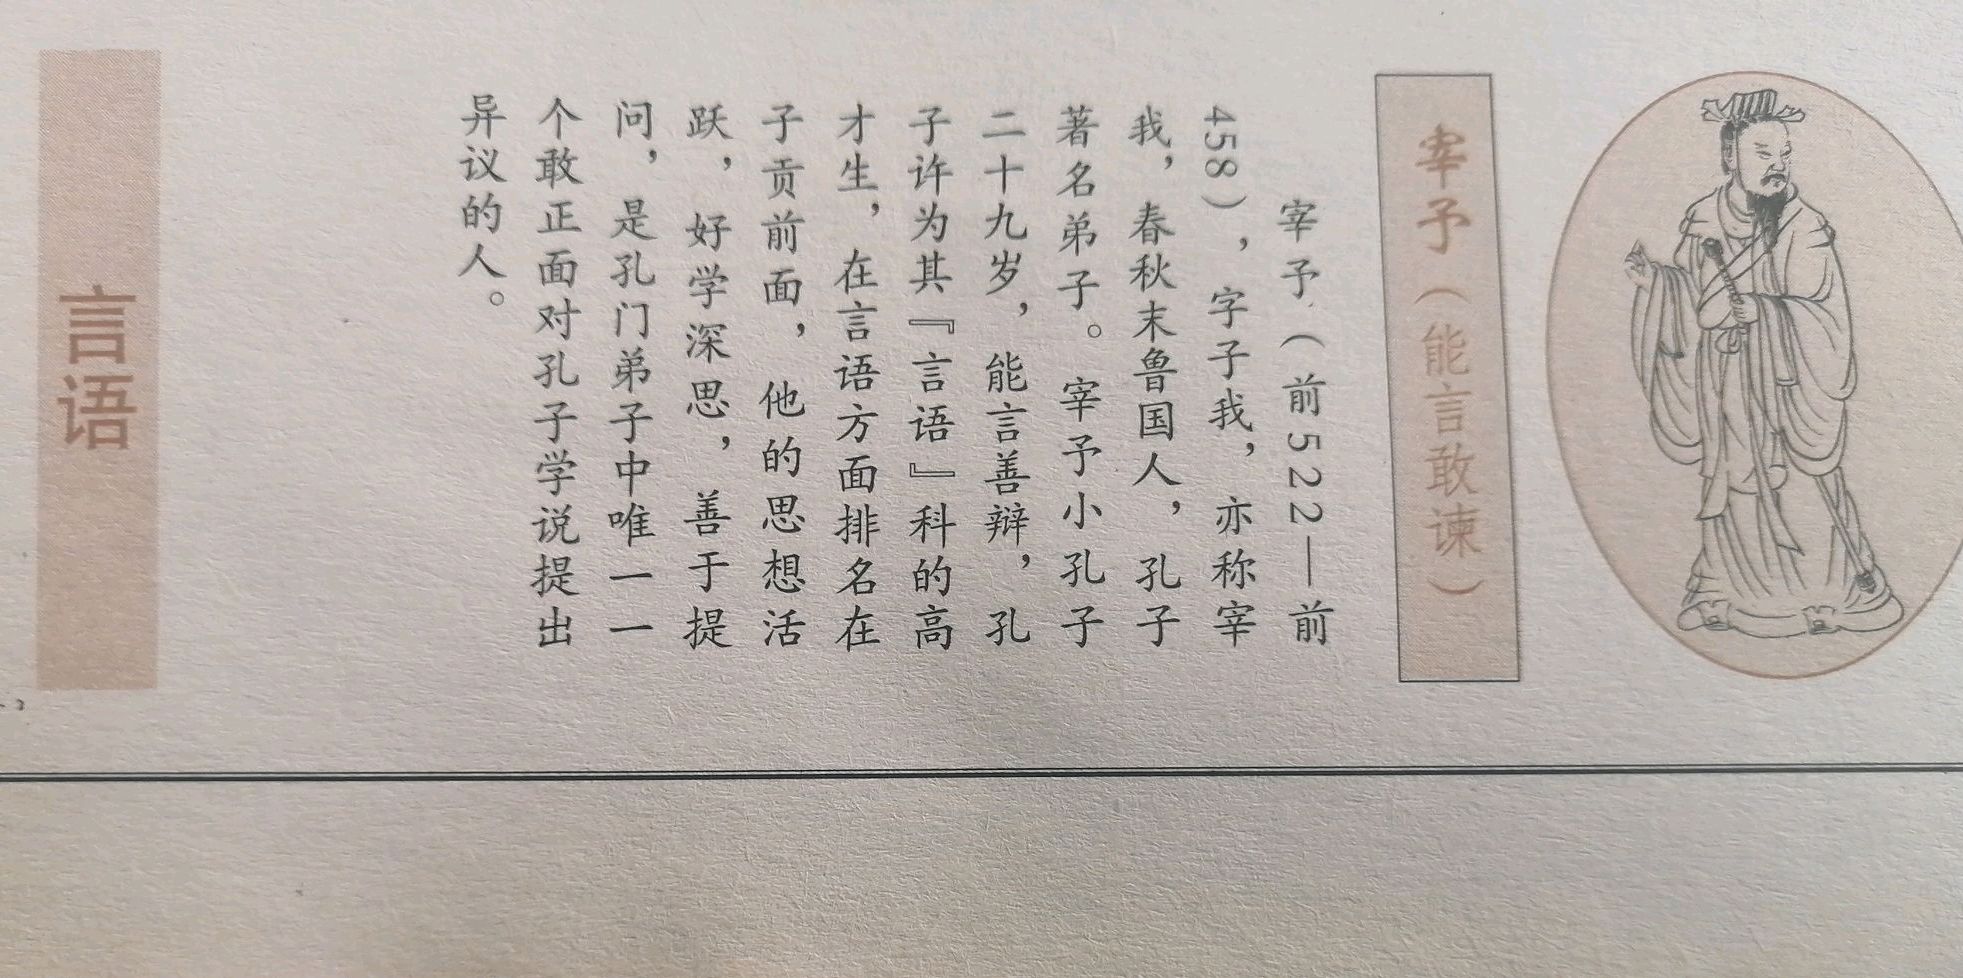 宰予（能言敢谏）
宰予（前522—前
458），字子我，亦称宰
我，春秋末鲁国人，孔子
著名弟子。宰予小孔子
二十九岁，能言善辩，孔
子许为其『言语』科的高
才生，在言语方面排名在
子贡前面，他的思想活
跃，好学深思，善于提
问，是孔门弟子中唯一一
个敢正面对孔子学说提出
异议的人。
言语